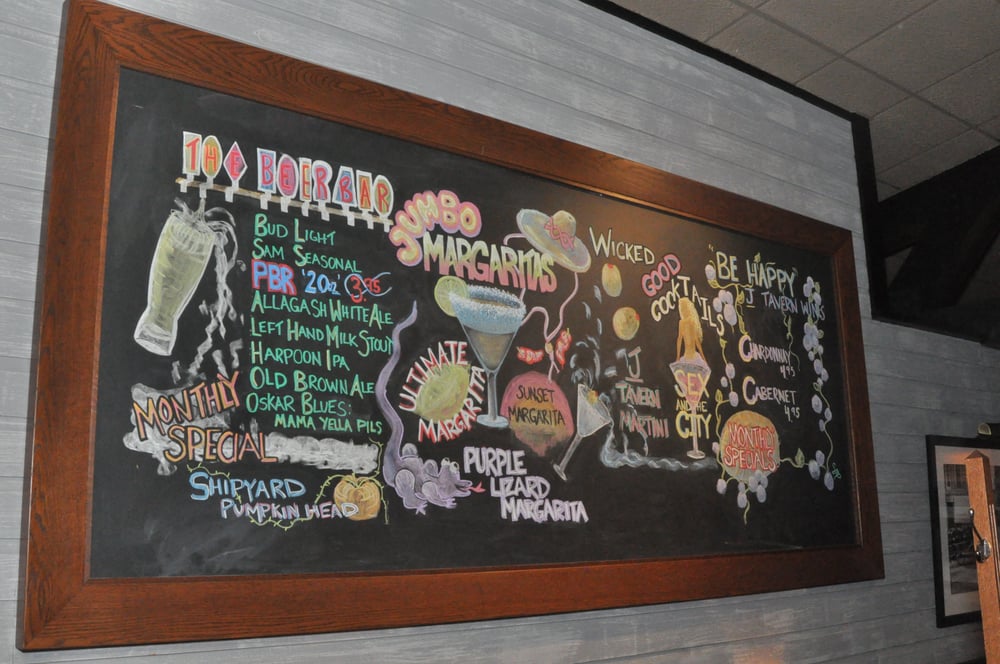 THE BEER BAR
BUD LIGHT
SAM SEASONAL
PBR '20oz' 3.95
ALLAGASH WHITE ALE
LEFT HAND MILK STOUT
HARPOON IPA
OLD BROWN ALE
OSKAR BLUES:
MAMA YELLA PILS
MONTHLY
SPECIAL
SHIPYARD
PUMPKIN HEAD
JUMBO
MARGARITAS
ULTIMATE
MARGARITA
SUNSET
MARGARITA
PURPLE
LIZARD
MARGARITA
WICKED
GOOD
COCKTAILS
JJ
TAVERN
MARTINI
SEX
AND THE
CITY
"BE HAPPY
TAVERN WINES
CHARDONNAY
4.95
CABERNET
4.95
MONTHLY
SPECIALS